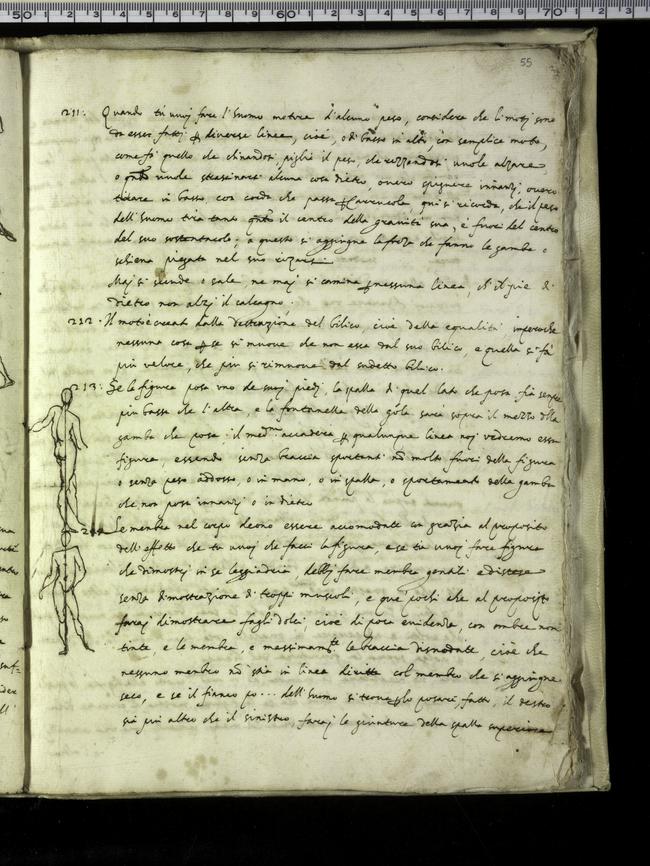 50 60 70
55
211: Quando tu vuoj fare l'huomo motore d'alcuno peso, considera che li moti sono
da esser fatti p diverse linee, cioè, o di basso in alto, con semplice moto,
come fà quello, che chinandosi, piglia il peso, che rizzandosi vuole alzare
o quando vuole strascinarsi alcuna cosa dietro, overo spignere innanzj, overo
tirare in basso, con corda che passa p carrucola, qui si ricorda, che il peso
dell'huomo tira tanto quanto il centro della gravità sua, è fuori del centro
del suo sostentacolo; a questo si aggiugne la forza che fanno le gambe o
schiena piegata nel suo rizzarsi
Maj si scende o sale, ne maj si camina p nessuna linea, ch'il piè di
dietro non alzj il calcagno.
212. Il moto è creato dalla destruzione del bilico, cioè della equalità imperoche
nessuna cosa p se si muove che non esca dal suo bilico, e quella si fà
più veloce, che più si rimuove dal sudetto bilico.
213: Se la figura posa uno de suoj piedj, la spalla di quel lato che posa fia sempre
più bassa che l'altra, e la fontanella della gola sarà sopra il mezzo della
gamba che posa, il medmo accaderà p qualunque linea noj vedremo essa
figura, essendo senza braccia sportanti nò molto fuori della figura
o senza peso addosso, o in mano, o in spalla, o sportamenti della gamba
che non posa innanzj o in dietro
214 Le membra nel corpo deono essere accomodate con grazia al proposito
dell'effetto che tu vuoj che faccj la figura, e se tu vuoj fare figura
che dimostrj in se leggiadria, debbj fare membra gentili e distese
senza dimostrazione di troppi muscoli, e que pochi che al proposito
faraj dimostrare fagli dolci, cioè di poca evidenza, con ombre non
tinte, e le membra, e massimamte le braccia disnodate, cioè che
nessuno membro nò stia in linea diritta col membro che si aggiugne
seco, e se il fianco po... dell'huomo si trova p lo posarsi fatto, il destro
sia più alto che il sinistro, faraj le giunture della spalla superiore